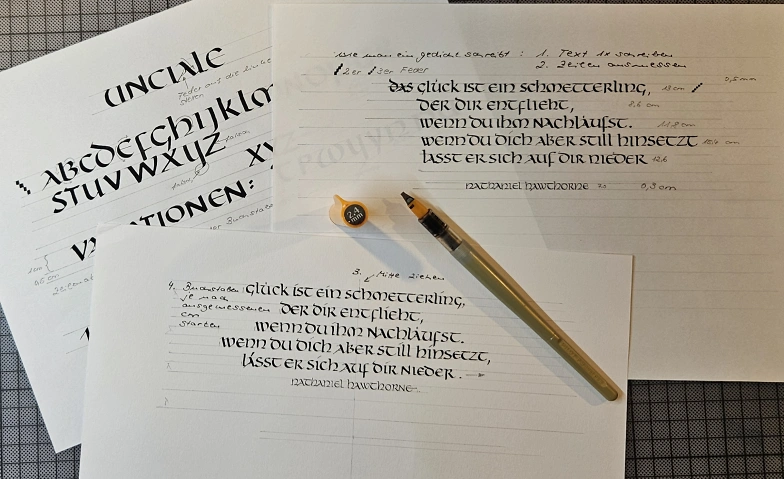 UNCIALE
Feder aus die linke
ABCDEFGHIJKLM
STUVWXYZ
XY
VA ATIONEN:
wie man ein gedicht schreibt : 1. Text 1x schreiben
2er 3er Feder 2. Zeilen ausmessen
0,5 cm
das Glück ist ein Schmetterling, 13 cm
der dir entflieht, 8,6 cm
wenn du ihm nachläufst. 11,8 cm
wenn du dich aber still hinsetzt cm
lässt er sich auf dir nieder 12,6
Nathaniel Hawthorne 0,3 cm
2.4
mm
3. Mitte ziehen
4. Buchstaben
je nach
ausgemessenen
cm
starten
Glück ist ein Schmetterling,
der dir entflieht,
wenn du ihm nachläufst.
wenn du dich aber still hinsetzt,
lässt er sich auf dir nieder.
Nathaniel Hawthorne